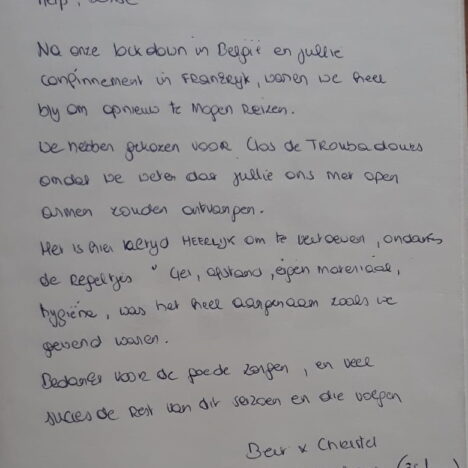 Na onze lockdown in België en jullie
confinnement in FRANKRIJK, waren we heel
blij om opnieuw te mogen REIZEN.
We hebben gekozen voor Clos de TROUBADOURS
omdat we weten dat jullie ons met open
armen zouden ontvangen.
Het is hier altijd HEERLIJK om te vertoeven, ondanks
de Regeltjes " Gel, afstand, eigen materiaal,
hygiëne, was het heel aangenaam zoals we
gewend waren.
Bedankt voor de goede zorgen, en veel
succes de Rest van dit seizoen en die volgen
x Christel